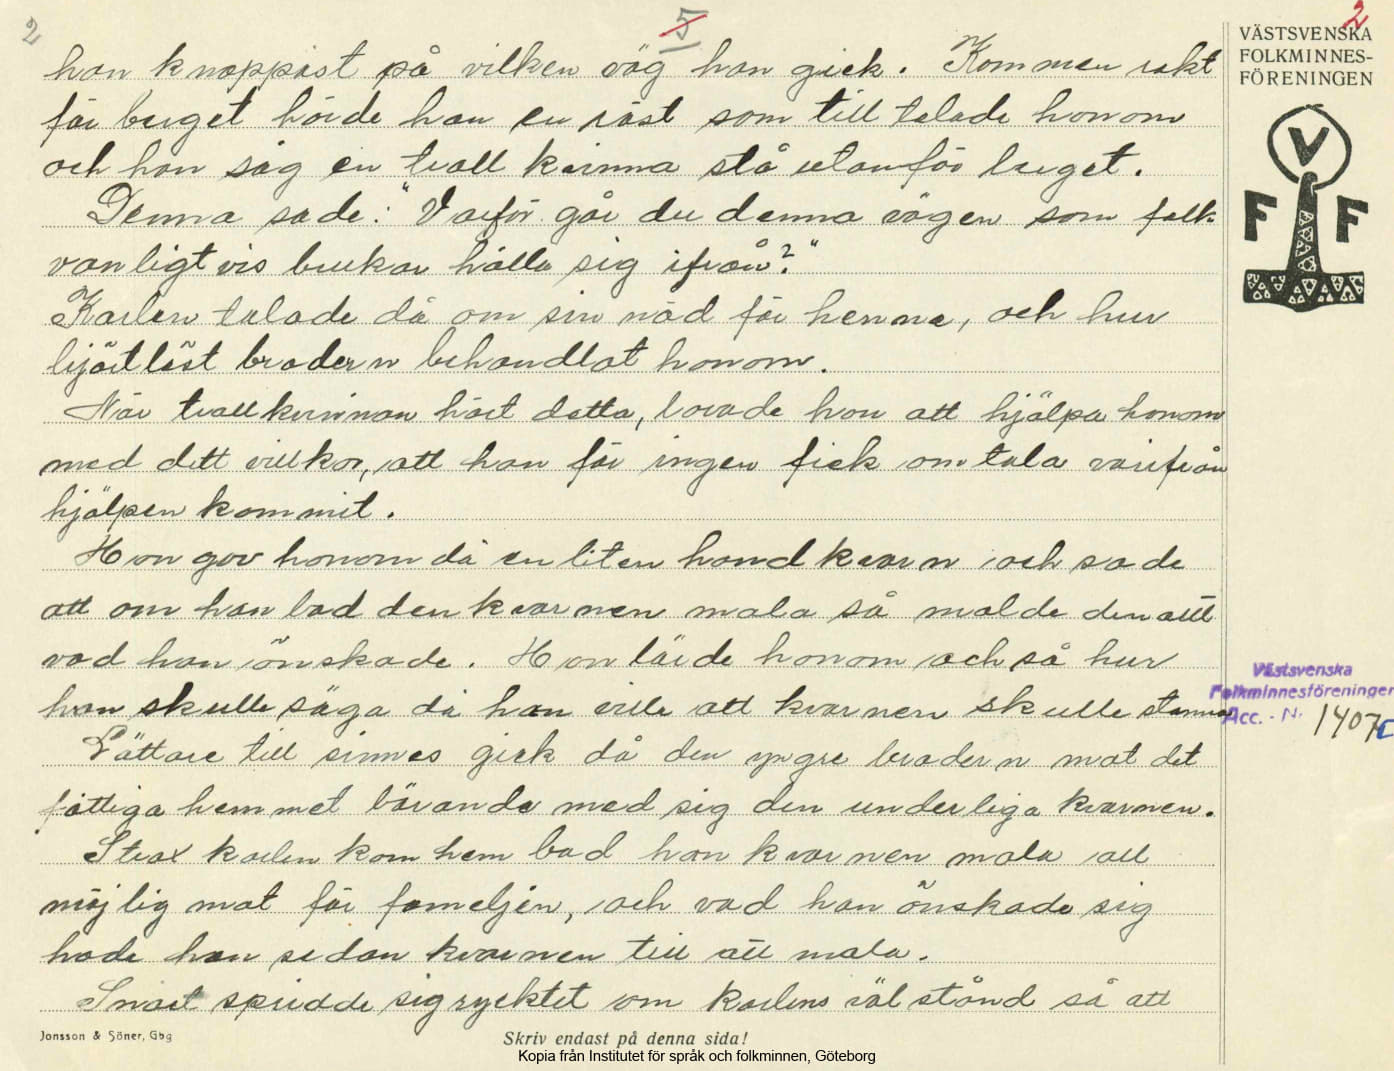 2
5
2
VÄSTSVENSKA
FOLKMINNES-
FÖRENINGEN
V
F F
han knappast på vilken väg han gick. Kommen rakt
för berget hörde han en röst som till talade honom
och han såg en troll kvinna stå utanför berget.
Denna sade: "Varför går du denna vägen som folk
vanligtvis brukar hålla sig ifrån?"
Karlen talade då om sin nöd för henne, och hur
hjärtlöst brodern behandlat honom.
När trollkvinnan hört detta, lovade hon att hjälpa honom
med dett villkor, att han för ingen fick om tala varifrån
hjälpen kommit.
Hon gav honom då en liten handkvarn och sade
att om han bad den kvarnen mala så malde den allt
vad han önskade. Hon lärde honom och så hur
han skulle säga då han ville att kvarnen skulle stanna
Lättare till sinnes gick då den yngre brodern mot det
fattiga hemmet bärande med sig den underliga kvarnen.
Strax karlen kom hem bad han kvarnen mala all
möjlig mat för fameljen, och vad han önskade sig
hade han sedan kvarnen till att mala.
Snart spridde sig ryktet om karlens välstånd så att
Västsvenska
Folkminnesföreningen
Acc. - N. 1407 C
Jonsson & Söner, Gbg
Skriv endast på denna sida!
Kopia från Institutet för språk och folkminnen, Göteborg